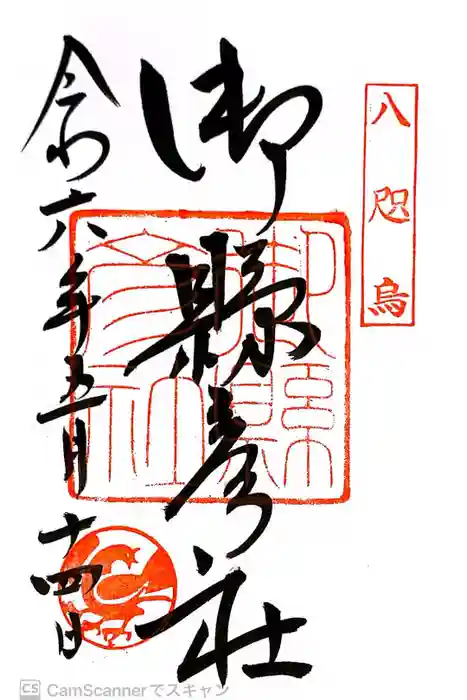 八咫烏
御縣彦社
御縣彦社
令和六年五月十四日
CS CamScannerでスキャン